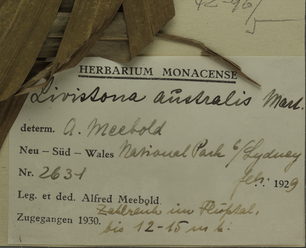 42-96/5
HERBARIUM MONACENSE
Livistona australis Mart.
determ. A. Meebold
Neu - Süd - Wales National Park b/Sydney
Nr. 2631 febr. 1929
Leg. et ded. Alfred Meebold.
Zugegangen 1930. Zahlreich im
bis 12-15 m h.